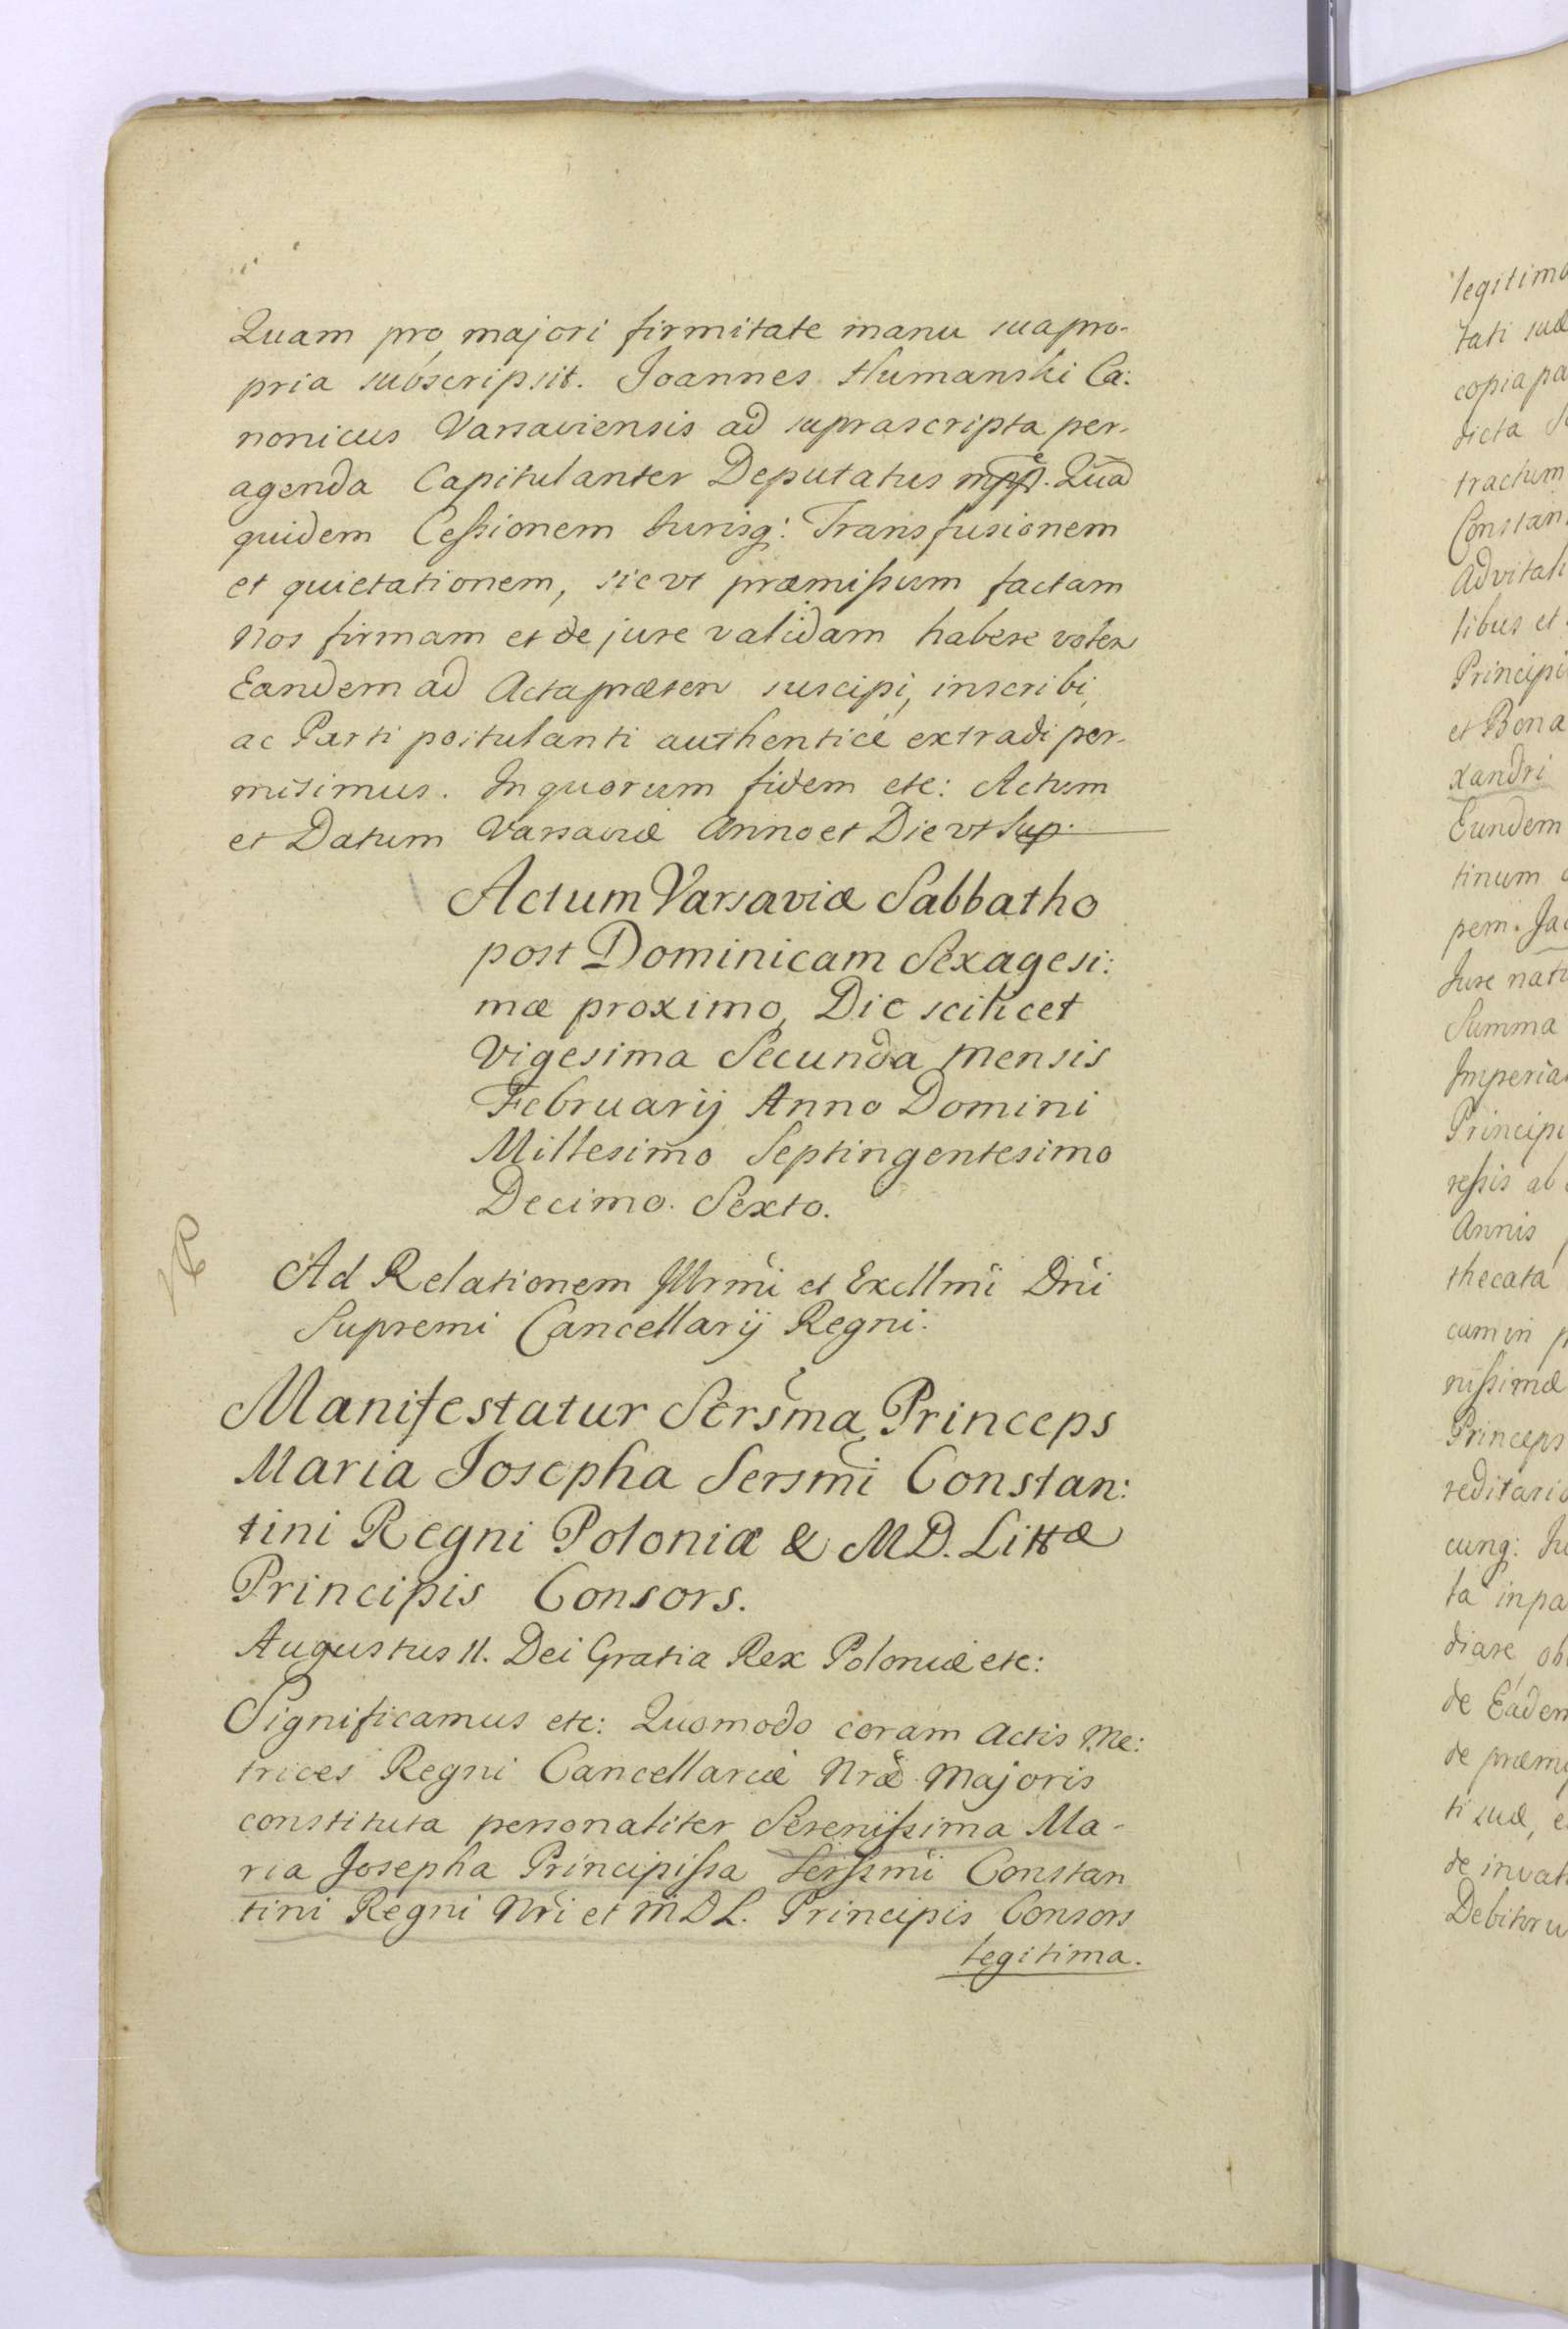 Quam pro majori firmitate manu sua pro-
pria subscripsit. Joannes Humanski Ca:
nonicus Varsaviensis ad suprascripta per-
agenda Capitulanter Deputatus mpp. Quã
quidem Cessionem Jurisq: Transfusionem
et quietationem, sic vt præmissum factam
Nos firmam et de jure validam habere volen
Eandem ad Acta præsen suscipi, inscribi,
ac Parti postulanti authenticè extradi per-
misimus. In quorum fidem etc: Actum
et Datum Varsaviæ Anno et Die vt Sup.
Actum Varsaviæ Sabbatho
post Dominicam Sexagesi:
mæ proximo, Die scilicet
Vigesima Secunda Mensis
Februarij Anno Domini
Millesimo Septingentesimo
Decimo. Sexto.
Ad Relationem Illrmi et Exellmi Dni
Supremi Cancellarij Regni.
Manifestatur Sersma Princeps
Maria Josepha Sersmi Constan:
tini Regni Poloniæ & M D. Littæ
Principis Consors.
Augustus II. Dei Gratia Rex Poloniæ etc:
Significamus etc: Quomodo coram Actis Me:
trices Regni Cancellariæ Nræ Majoris
constituta personaliter Serenissima Ma-
ria Josepha Principissa Serssmi Constan
tini Regni Nri et M D L. Principis Consors
legitima.
legitima
tati suæ
copia pa
dicta
tractum
Constan
Advitali
libus et
Principi
et Bona
xandri
Eundem
tinum
pem. Jac
Jure nati
Summa
Imperia
Principi
ressis ab
Annis
thecata
cum in
nissimæ
Princeps
reditario
cunq: Ju
ta in pa
diare, ob
de Eadem
de præmi
ti suæ, e
de invati
Debitoru